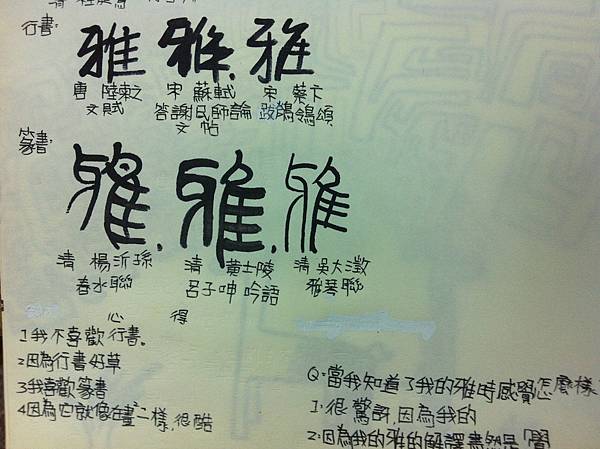 行書:
雅 雅 雅
唐 陸柬之 文賦
宋 蘇軾 答謝民師論文帖
宋 蔡卞 跋鶺鴒頌
篆書:
雅 雅 雅
清 楊沂孫 春水聯
清 黃士陵 呂子呻吟語
清 吳大澂 雅琴聯
心得
1我不喜歡行書。
2因為行書好草
3我喜歡篆書
4因為它就像在畫一樣,很酷
Q:當我知道了我的雅時感覺怎麼樣
1:很驚訝,因為我的
2:因為我的雅的解譯竟然是「